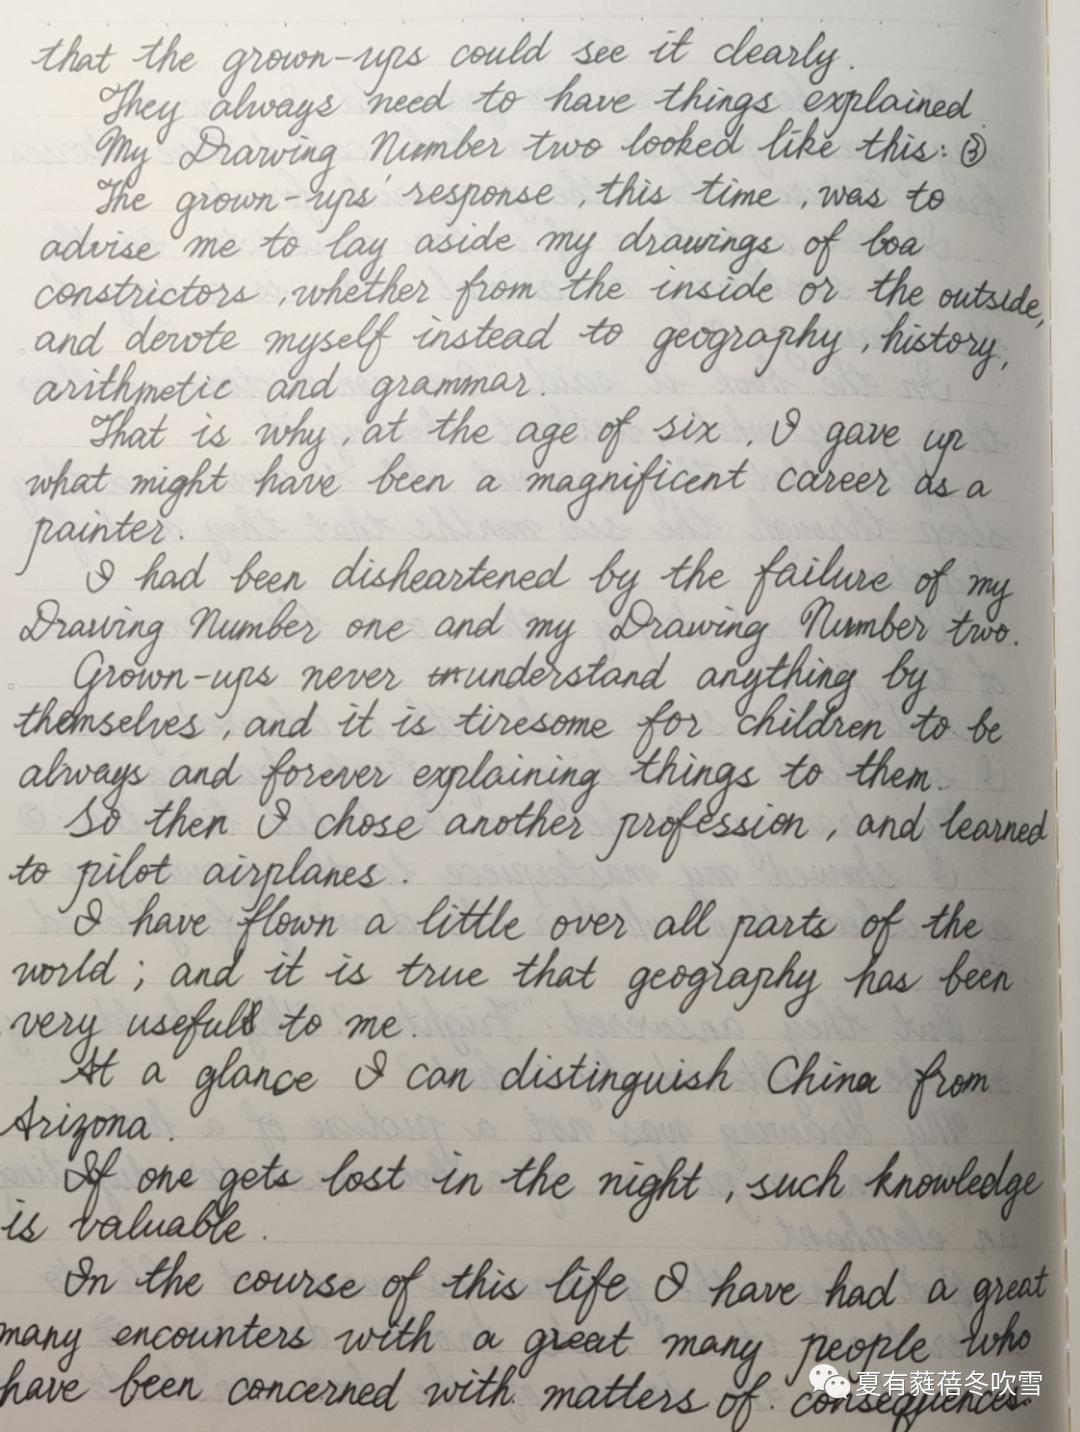 that the grown-ups could see it clearly.
They always need to have things explained.
My Drawing Number two looked like this: ③
The grown-ups' response, this time, was to
advise me to lay aside my drawings of boa
constrictors, whether from the inside or the outside,
and devote myself instead to geography, history,
arithmetic and grammar.
That is why, at the age of six, I gave up
what might have been a magnificent career as a
painter.
I had been disheartened by the failure of my
Drawing Number one and my Drawing Number two.
Grown-ups never understand anything by
themselves, and it is tiresome for children to be
always and forever explaining things to them.
So then I chose another profession, and learned
to pilot airplanes.
I have flown a little over all parts of the
world; and it is true that geography has been
very useful to me.
At a glance I can distinguish China from
Arizona.
If one gets lost in the night, such knowledge
is valuable.
In the course of this life I have had a great
many encounters with a great many people who
have been concerned with matters of consequences.
夏有蕤蓓冬吹雪